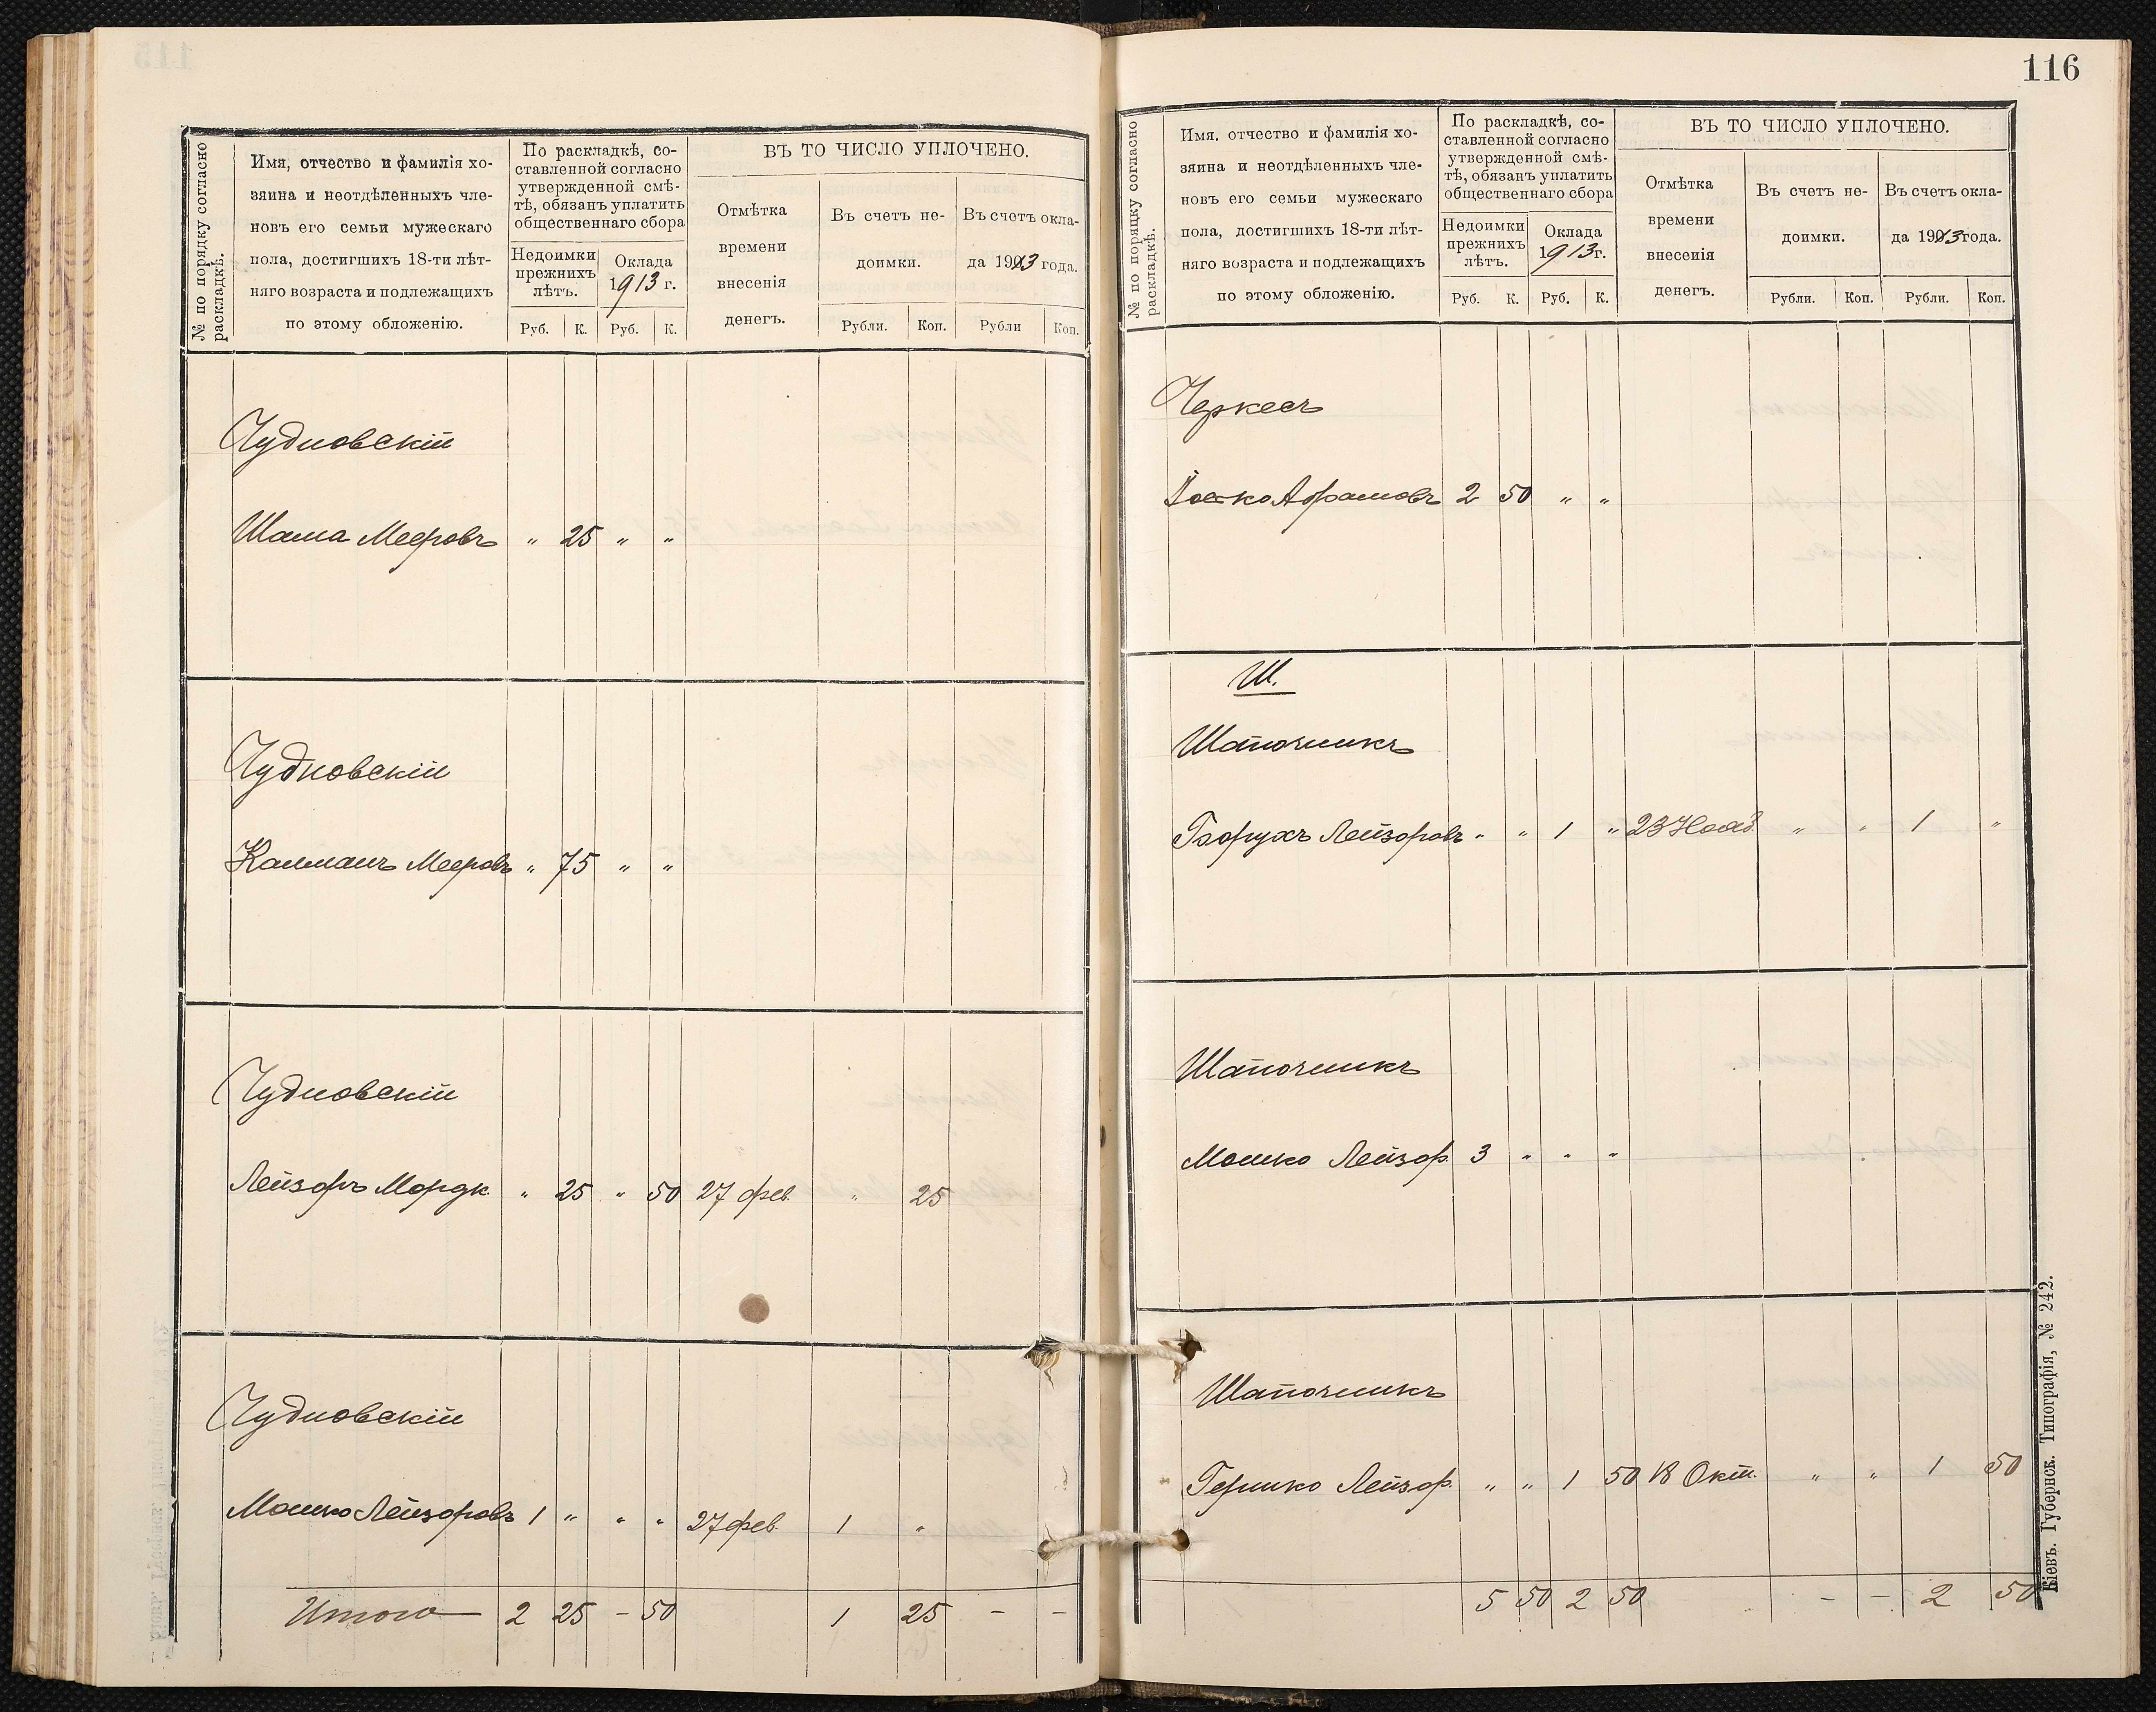 № по порядку согласно
раскладкѣ.
Имя, отчество и фамилія хо-
зяина и неотдѣленныхъ чле-
новъ его семьи мужескаго
пола, достигшихъ 18-ти лѣт-
няго возраста и подлежащихъ
по этому обложенію.
По раскладкѣ, со-
ставленной согласно
утвержденной смѣ-
тѣ, обязанъ уплатить
общественнаго сбора
Недоимки
прежнихъ
лѣтъ.
Оклада
1913 г.
Руб. К. Руб. К.
ВЪ ТО ЧИСЛО УПЛОЧЕНО.
Отмѣтка
времени
внесенія
денегъ.
Въ счетъ не-
доимки.
Въ счетъ окла-
да 1913 года.
Рубли. Коп. Рубли Коп.
Чудновскій
Шама Мееровъ " 25 " "
Чудновскій
Калманъ Мееровъ " 75 " "
Чудновскій
Лейзоръ Мордк. " 25 " 50 27 фев. " 25
Чудновскій
Мошко Лейзоровъ 1 " " " 27 фев. 1 "
Итого 2 25 - 50 1 25 - -
116
№ по порядку согласно
раскладкѣ.
Имя, отчество и фамилія хо-
зяина и неотдѣленныхъ чле-
новъ его семьи мужескаго
пола, достигшихъ 18-ти лѣт-
няго возраста и подлежащихъ
по этому обложенію.
По раскладкѣ, со-
ставленной согласно
утвержденной смѣ-
тѣ, обязанъ уплатить
общественнаго сбора
Недоимки
прежнихъ
лѣтъ.
Оклада
1913 г.
Руб. К. Руб. К.
ВЪ ТО ЧИСЛО УПЛОЧЕНО.
Отмѣтка
времени
внесенія
денегъ.
Въ счетъ не-
доимки.
Въ счетъ окла-
да 1913 года.
Рубли. Коп. Рубли. Коп.
Черкесъ
Іоско Абрамовъ 2 50 " "
Ш.
Шапочникъ
Борухъ Лейзоровъ " " 1 " 23 Нояб. " " 1 "
Шапочникъ
Мошко Лейзор. 3 " " "
Шапочникъ
Гершко Лейзор. " " 1 50 18 Окт. " " 1 50
5 50 2 50 - - 2 50
Кіевъ. Губернск. Типографія, № 242.